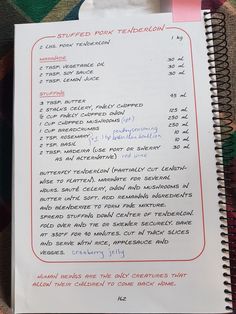 STUFFED PORK TENDERLOIN
2 LBS. PORK TENDERLOIN 1 kg
MARINADE
2 TBSP. VEGETABLE OIL 30 mL
2 TBSP. SOY SAUCE 30 mL
2 TBSP. LEMON JUICE 30 mL
STUFFING
3 TBSP. BUTTER 45 mL
2 STALKS CELERY, FINELY CHOPPED
½ CUP FINELY CHOPPED ONION 125 mL
1 CUP CHOPPED MUSHROOMS (opt) 250 mL
1 CUP BREADCRUMBS 250 mL
2 TSP. ROSEMARY poultry seasoning 10 mL
2 TSP. BASIL 10 mL
2 TBSP. MADEIRA (USE PORT OR SHERRY 30 mL
AS AN ALTERNATIVE) red wine
BUTTERFLY TENDERLOIN (PARTIALLY CUT LENGTH-
WISE TO FLATTEN). MARINATE FOR SEVERAL
HOURS. SAUTÉ CELERY, ONION AND MUSHROOMS IN
BUTTER UNTIL SOFT. ADD REMAINING INGREDIENTS
AND BLENDERIZE TO FORM FINE MIXTURE.
SPREAD STUFFING DOWN CENTER OF TENDERLOIN.
FOLD OVER AND TIE OR SKEWER SECURELY. BAKE
AT 350°F FOR 40 MINUTES. CUT IN THICK SLICES
AND SERVE WITH RICE, APPLESAUCE AND
VEGGIES. cranberry jelly
HUMAN BEINGS ARE THE ONLY CREATURES THAT
ALLOW THEIR CHILDREN TO COME BACK HOME.
162